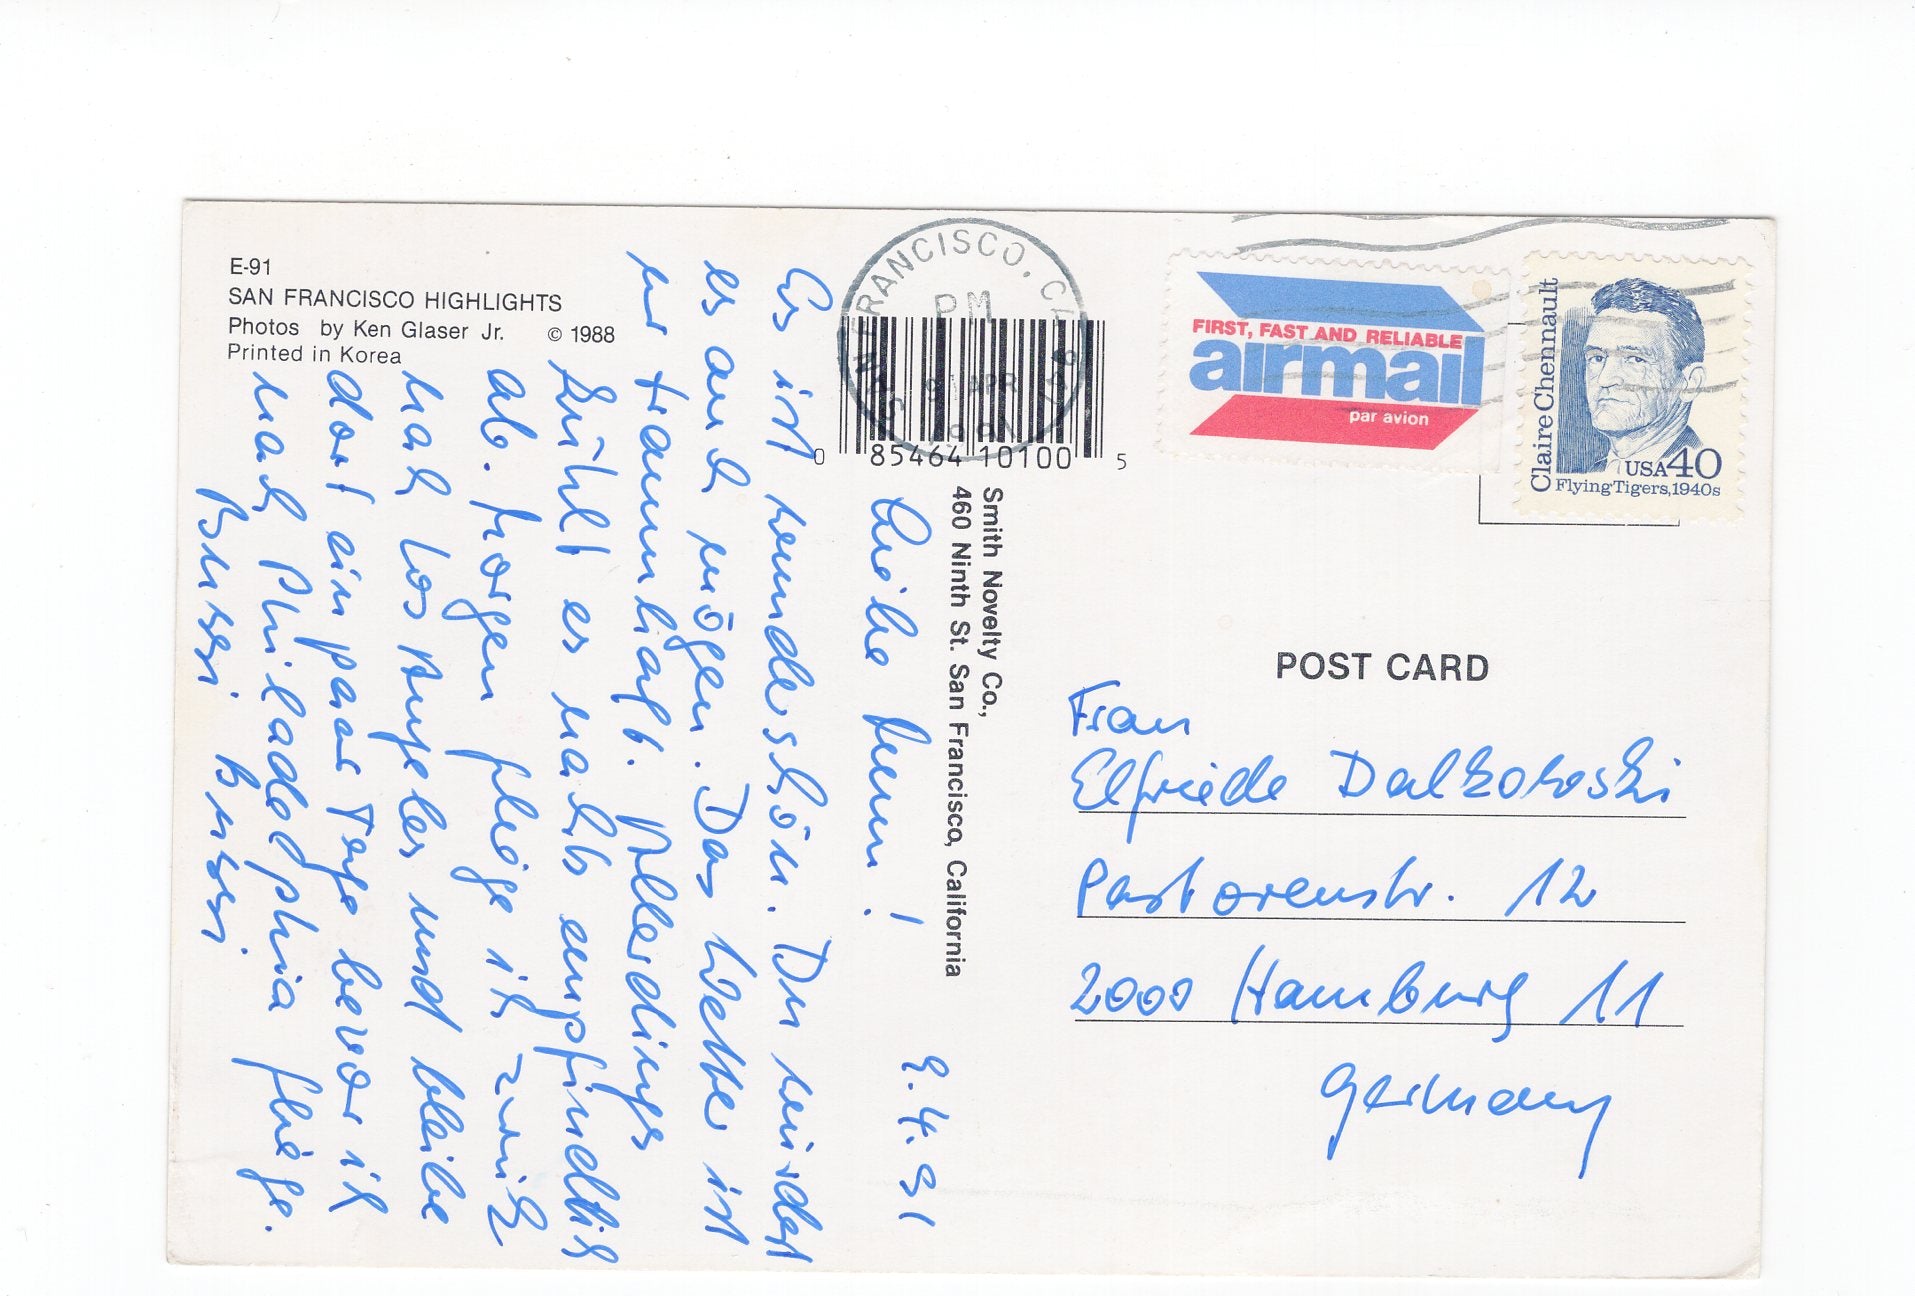 E-91
SAN FRANCISCO HIGHLIGHTS
Photos by Ken Glaser Jr. © 1988
Printed in Korea
9.4.91
Liebe !
Es ist wunderschön. Du würdest
es auch mögen. Das Wetter ist
nur traumhaft. Allerdings
kühlt es nachts empfindlich
ab. Morgen fliege ich zurück
nach Los Angeles und bleibe
dort ein paar Tage bevor ich
nach Philadelphia fliege.
Bussi Bussi
SAN FRANCISCO, CA
PM
APR
1991
0 85464 10100 5
Smith Novelty Co.,
460 Ninth St. San Francisco, California
FIRST, FAST AND RELIABLE
airmail
par avion
Claire Chennault
USA 40
Flying Tigers, 1940s
POST CARD
Frau
Elfriede Dalkowski
Pastorenstr. 12
2000 Hamburg 11
Germany